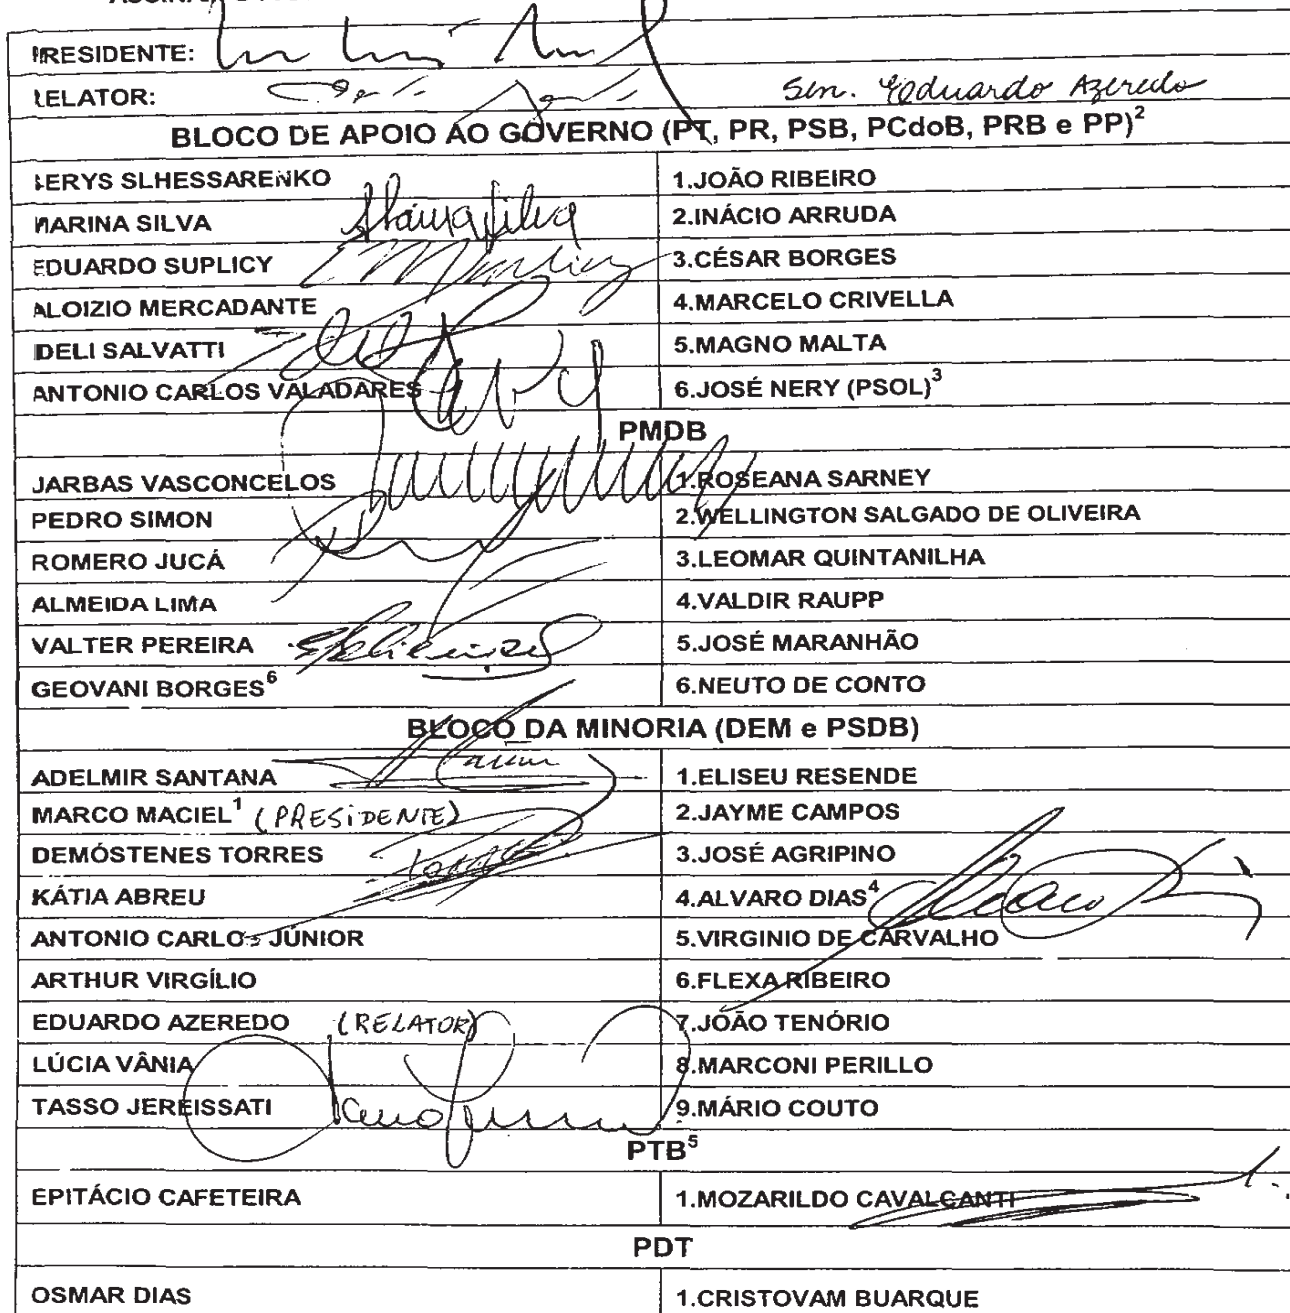 PRESIDENTE:
RELATOR: Sen. Eduardo Azeredo
BLOCO DE APOIO AO GOVERNO (PT, PR, PSB, PCdoB, PRB e PP)²
SERYS SLHESSARENKO 1.JOÃO RIBEIRO
MARINA SILVA 2.INÁCIO ARRUDA
EDUARDO SUPLICY 3.CÉSAR BORGES
ALOIZIO MERCADANTE 4.MARCELO CRIVELLA
IDELI SALVATTI 5.MAGNO MALTA
ANTONIO CARLOS VALADARES 6.JOSÉ NERY (PSOL)³
PMDB
JARBAS VASCONCELOS 1.ROSEANA SARNEY
PEDRO SIMON 2.WELLINGTON SALGADO DE OLIVEIRA
ROMERO JUCÁ 3.LEOMAR QUINTANILHA
ALMEIDA LIMA 4.VALDIR RAUPP
VALTER PEREIRA 5.JOSÉ MARANHÃO
GEOVANI BORGES⁶ 6.NEUTO DE CONTO
BLOCO DA MINORIA (DEM e PSDB)
ADELMIR SANTANA 1.ELISEU RESENDE
MARCO MACIEL¹ (PRESIDENTE) 2.JAYME CAMPOS
DEMÓSTENES TORRES 3.JOSÉ AGRIPINO
KÁTIA ABREU 4.ALVARO DIAS⁴
ANTONIO CARLOS JÚNIOR 5.VIRGINIO DE CARVALHO
ARTHUR VIRGÍLIO 6.FLEXA RIBEIRO
EDUARDO AZEREDO (RELATOR) 7.JOÃO TENÓRIO
LÚCIA VÂNIA 8.MARCONI PERILLO
TASSO JEREISSATI 9.MÁRIO COUTO
PTB⁵
EPITÁCIO CAFETEIRA 1.MOZARILDO CAVALCANTI
PDT
OSMAR DIAS 1.CRISTOVAM BUARQUE